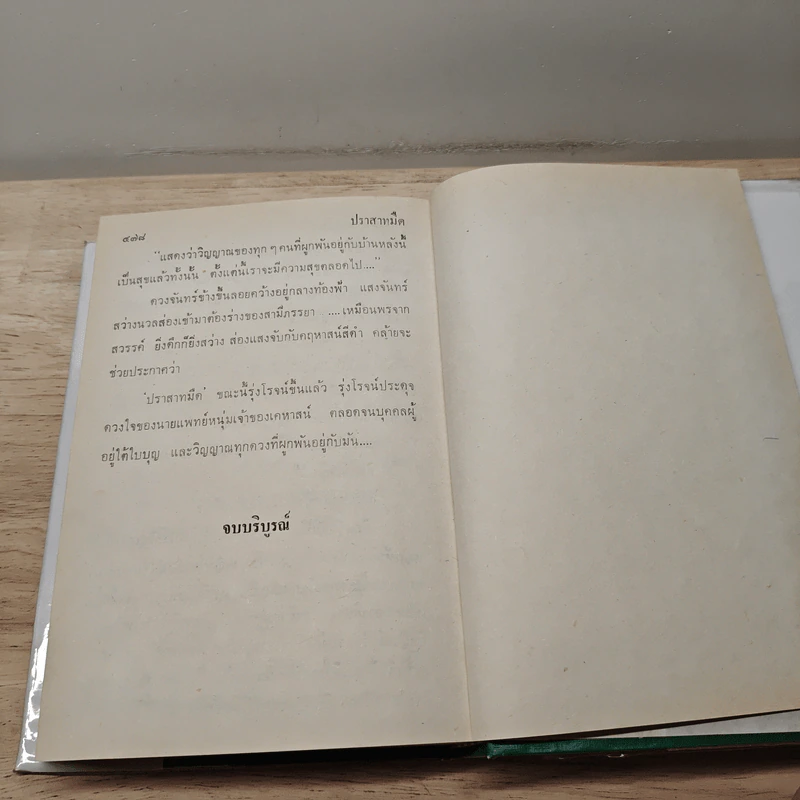 ๕๗๘
ปราสาทมืด
"แสดงว่าวิญญาณของทุก ๆ คนที่ผูกพันอยู่กับบ้านหลังนี้
เป็นสุขแล้วทั้งนั้น" ตั้งแต่นี้เราจะมีความสุขตลอดไป...."
ดวงจันทร์ข้างขึ้นลอยคว้างอยู่กลางท้องฟ้า แสงจันทร์
สว่างนวลส่องเข้ามาต้องร่างของสามีภรรยา ....เหมือนพรจาก
สวรรค์ ยิ่งดึกก็ยิ่งสว่าง ส่องแสงจับกับคฤหาสน์สีดำ คล้ายจะ
ช่วยประกาศว่า
'ปราสาทมืด' ขณะนี้รุ่งโรจน์ขึ้นแล้ว รุ่งโรจน์ประดุจ
ดวงใจของนายแพทย์หนุ่มเจ้าของเคหาสน์ ตลอดจนบุคคลผู้
อยู่ใต้ใบบุญ และวิญญาณทุกดวงที่ผูกพันอยู่กับมัน....
จบบริบูรณ์